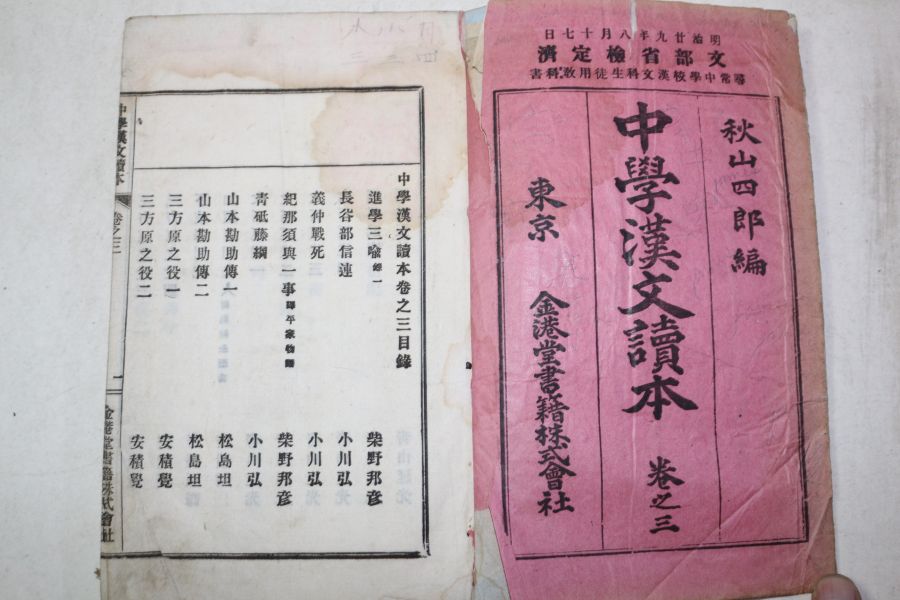 明治廿九年八月十七日
文部省檢定濟
尋常中學校漢文科生徒用敎科書
秋山四郎編
中學漢文讀本 卷之三
東京 金港堂書籍株式會社
中學漢文讀本卷之三目錄
進學三喩 錄一 柴野邦彦
長谷部信連 小川弘
義仲戰死 小川弘
紀那須與一事 譯平家物語 柴野邦彦
靑砥藤綱 小川弘
山本勘助傳一 松島坦
山本勘助傳二 松島坦
三方原之役一 安積覺
三方原之役二 安積覺
中學漢文讀本 卷之三 一 金港堂書籍株式會社